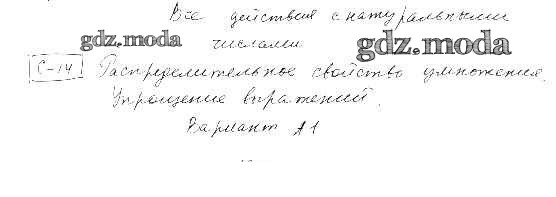 Все действия с натуральными
gdz.moda числами gdz.moda
С-14 Распределительное свойство умножения.
Упрощение выражений.
Вариант А1